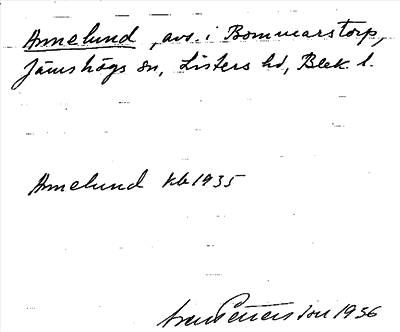 Annelund, avs. i Bommarstorp,
Jämshögs sn, Listers hd, Blek. l.
Annelund kb 1935
Petersson 1936